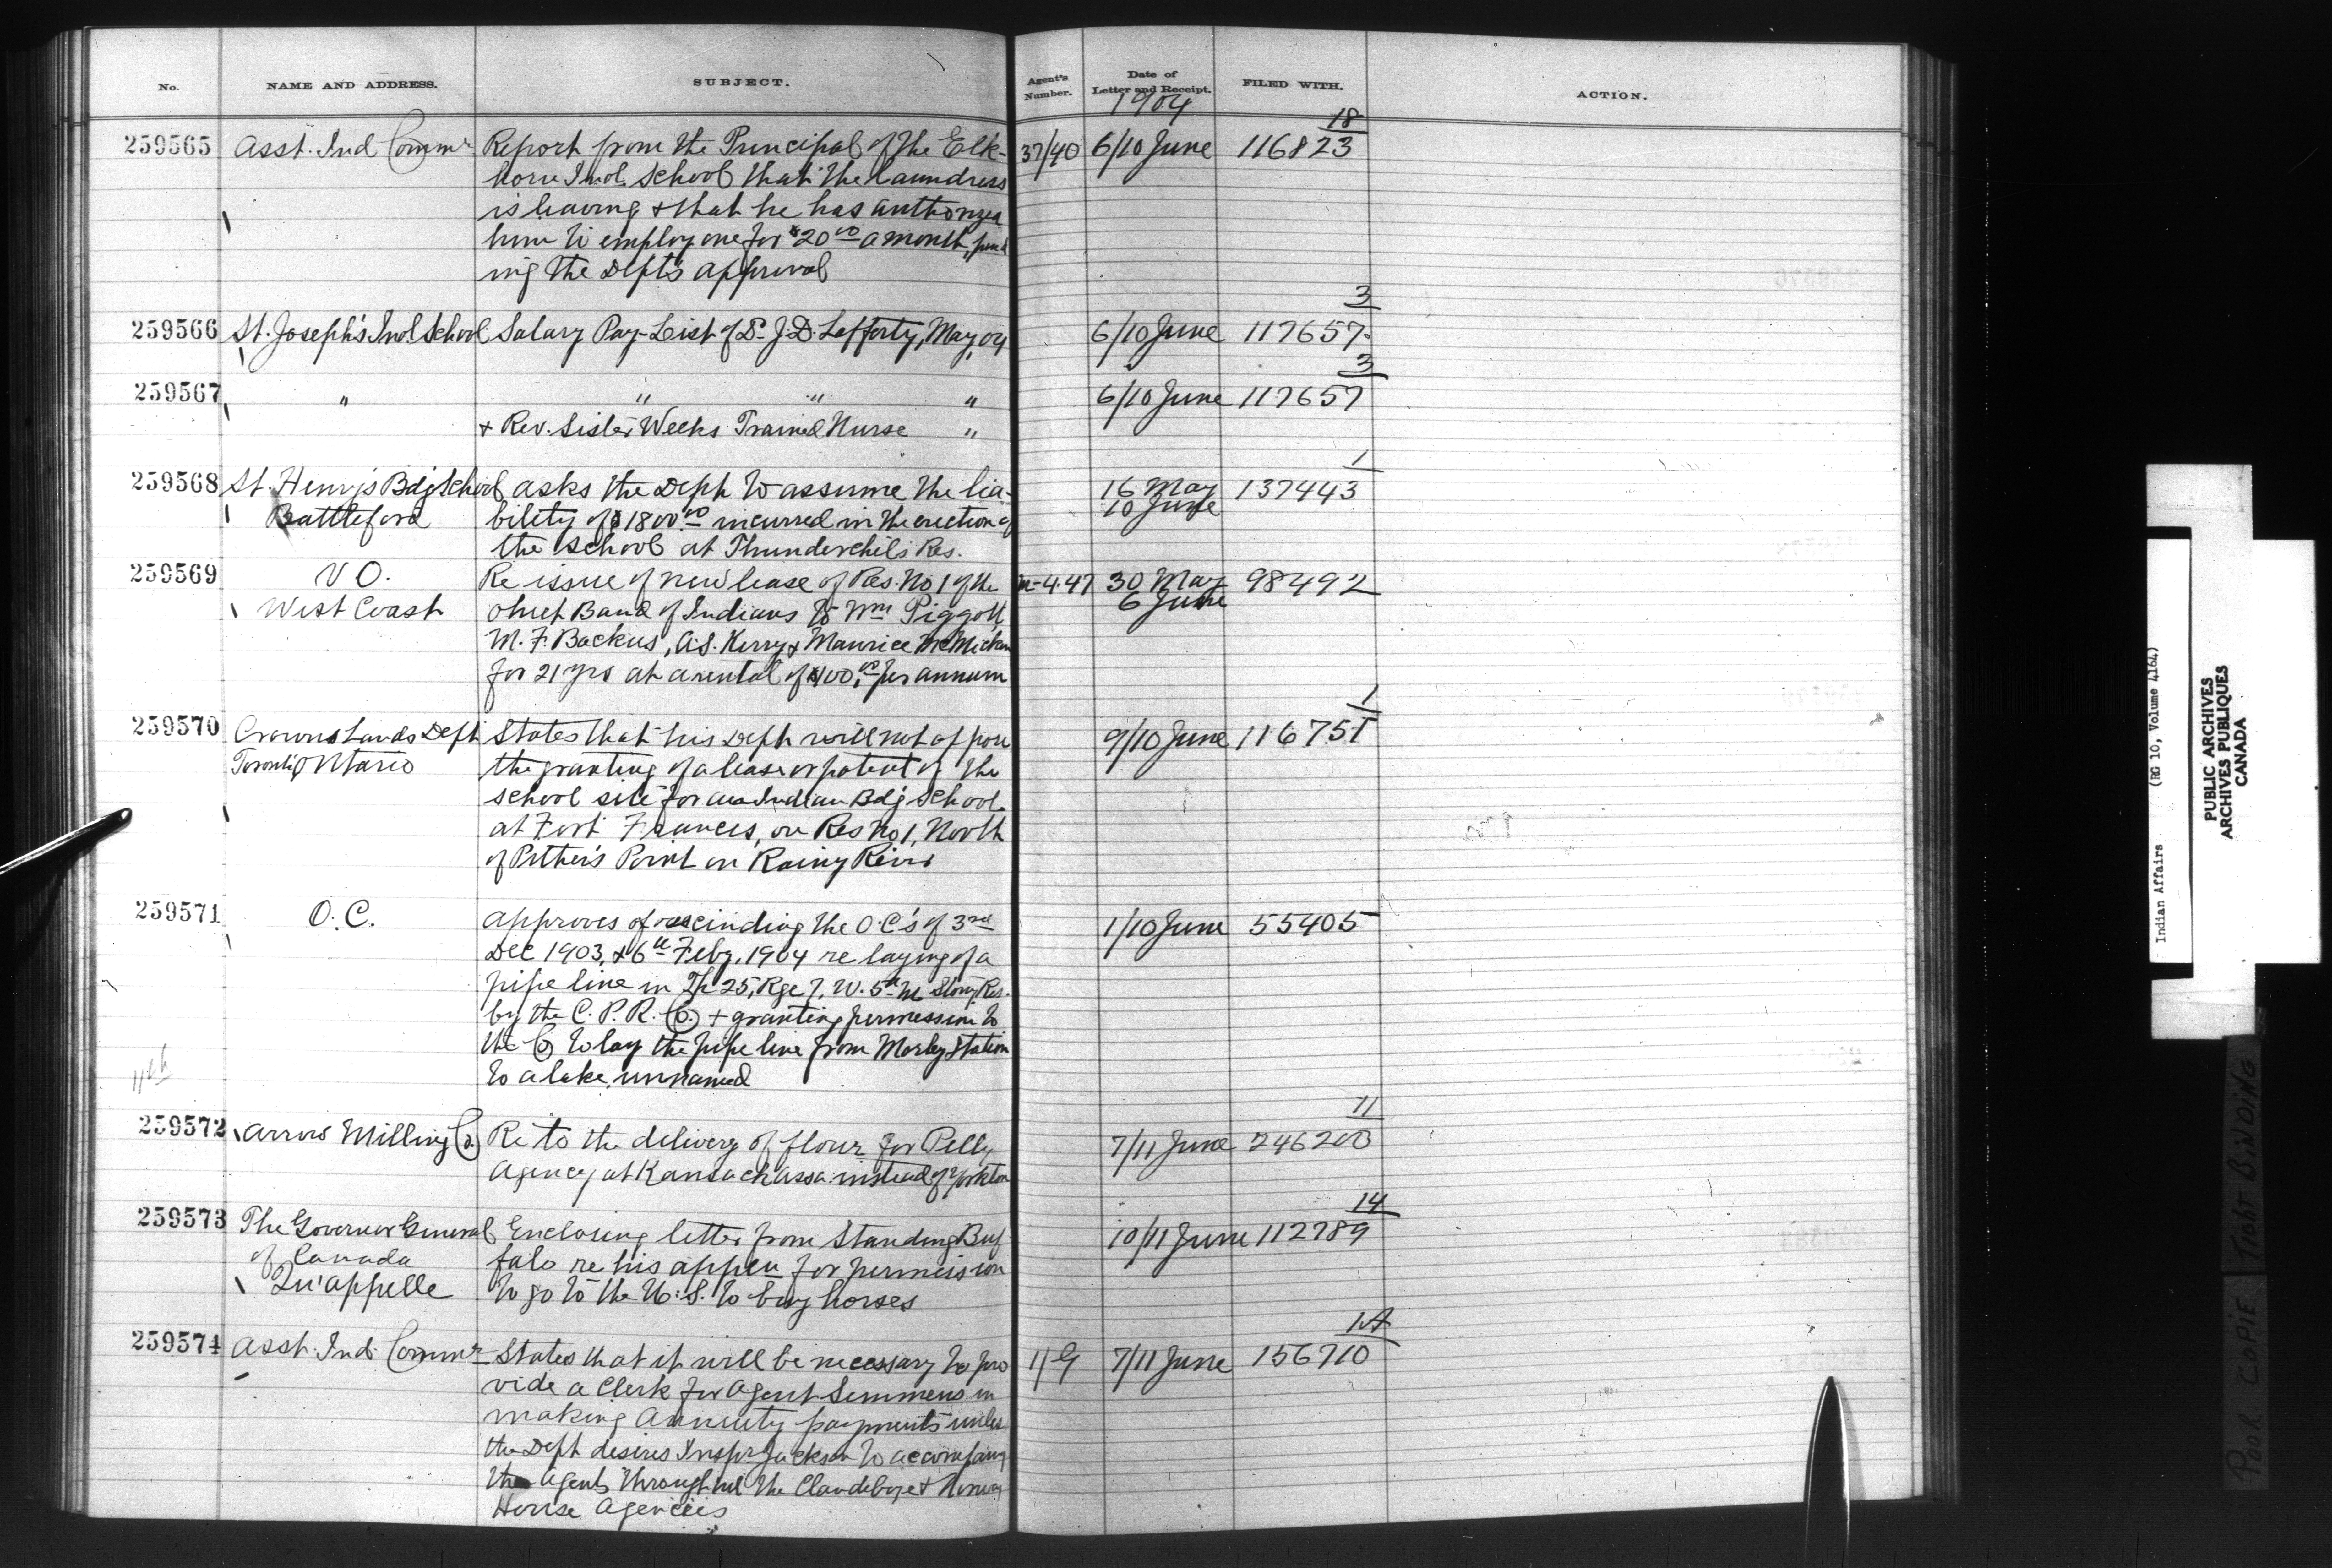 No. NAME AND ADDRESS. SUBJECT. Agent's Number. Date of Letter and Receipt. FILED WITH. ACTION.
1904
18
259565 Asst. Ind Commr Report from the Principal of the Elk- 37/40 6/10 June 116823
horn Indl. School that the Laundress
is leaving & that he has authorized
him to employ one for $20 00 a month, pend
ing the Dept's approval
3
259566 St. Joseph's Indl School Salary Pay-List of Dr J.D. Lafferty, May, 04 6/10 June 117657
3
259567 " " " " 6/10 June 117657
& Rev. Sister Weeks Trained Nurse "
1
259568 St. Henry's Bdg School asks the Dept to assume the lia- 16 May 137443
Battleford bility of $1800.00 incurred in the erection of 10 June
the school at Thunderchild's Res.
259569 V O. Re issue of new lease of Res. No 1 of the M-4.47 30 May 98492
West Coast Band of Indians to Wm Piggott, 6 June
M. F. Backus, A.S. Kerry & Maurice McMicken
for 21 yrs at a rental of $100.00 per annum
1
259570 Crown Lands Dept States that his Dept will not oppose 9/10 June 116751
Toronto Ontario the granting of a lease or patent of the
school site for an Indian Bdg School
at Fort Frances, on Res No 1, North
of Pither's Point on Rainy River
259571 O.C. approves of rescinding the O.C's of 3rd 1/10 June 55405
Dec 1903, & 6th Feby. 1904 re laying of a
pipe line in Tp 25, Rge 7, W. 5th M Stony Res.
by the C. P. R. Co. & granting permission to
the Co to lay the pipe line from Morley Station
to a lake, unnamed
11th
11
259572 Arrow Milling Co. Re to the delivery of flour for Pelly 7/11 June 246200
Agency at Kamsack Assa. instead of Yorkton
14
259573 The Governor General Enclosing letter from Standing Buf 10/11 June 112789
of Canada falo re his appcn for permission
Qu'appelle to go to the U.S. to buy horses
1A
259574 Asst. Ind. Commr States that it will be necessary to pro 1/G 7/11 June 156710
vide a Clerk for Agent Semmens in
making Annuity payments unless
the Dept desires Inspr Jackson to accompany
the Agents throughout the Clandeboye & Norway
House Agencies
Indian Affairs (RG 10, Volume 4164)
PUBLIC ARCHIVES
ARCHIVES PUBLIQUES
CANADA
POOR COPIE TIGHT BINDING